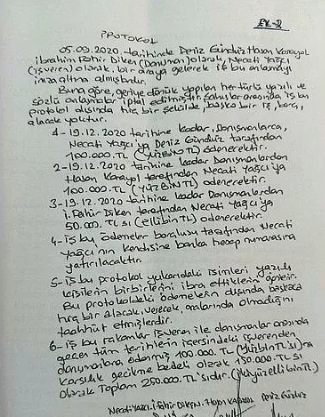 EK-2
PROTOKOL
05.09.2020 tarihinde Deniz Gündüz Hasan Karayol
İbrahim Pahir Diken (Danışman) olarak, Necati Yağcı
(işveren) olarak, bir araya gelerek iş bu anlaşmayı
imza altına almışlardır.
Buna göre, geriye dönük yapılan her türlü yazılı ve
sözlü anlaşmalar iptal edilmiştir. Şahıslar arasında iş bu
protokol dışında hiç bir şekilde, başka bir iş, borç,
alacak yoktur.
1-19.12.2020 tarihine kadar, Danışmanlarca,
Necati Yağcı'ya Deniz Gündüz tarafından
100.000.TL (YÜZBİN TL) ödenecektir.
2-19.12.2020 tarihine kadar Danışmanlardan
Hasan Karayol tarafından Necati Yağcı'ya
100.000.TL (YÜZBİN TL) ödenecektir.
3-19.12.2020 tarihine kadar Danışmanlardan
İ.Pahir Diken tarafından Necati Yağcı'ya
50.000.TL sı (ellibin TL) ödenecektir.
4-iş bu ödemeler borçlusu tarafından Necati
Yağcı'nın kendisine banka hesap numarasına
yatırılacaktır.
5-iş bu protokol yukarıdaki isimleri yazılı
kişilerin birbirlerini ibra ettiklerini gösterir.
Bu protokoldeki ödemelerin dışında başkaca
hiç bir alacak, verecek, aralarında olmadığını
taahhüt etmişlerdir.
6-iş bu rakamlar işveren ile danışmanlar arasında
geçen tüm tarihlerin içerisindeki işverenden
danışmanlara ödenmiş 100.000.TL (YüzbinTL) sına
karşılık gecikme bedeli olarak 150.000.TL sı
olarak Toplam 250.000.TL sıdır. (ikiyüzellibinTL)
Necati Yazıcı İ.Pahir Diken Hasan Karayol Deniz Gündüz